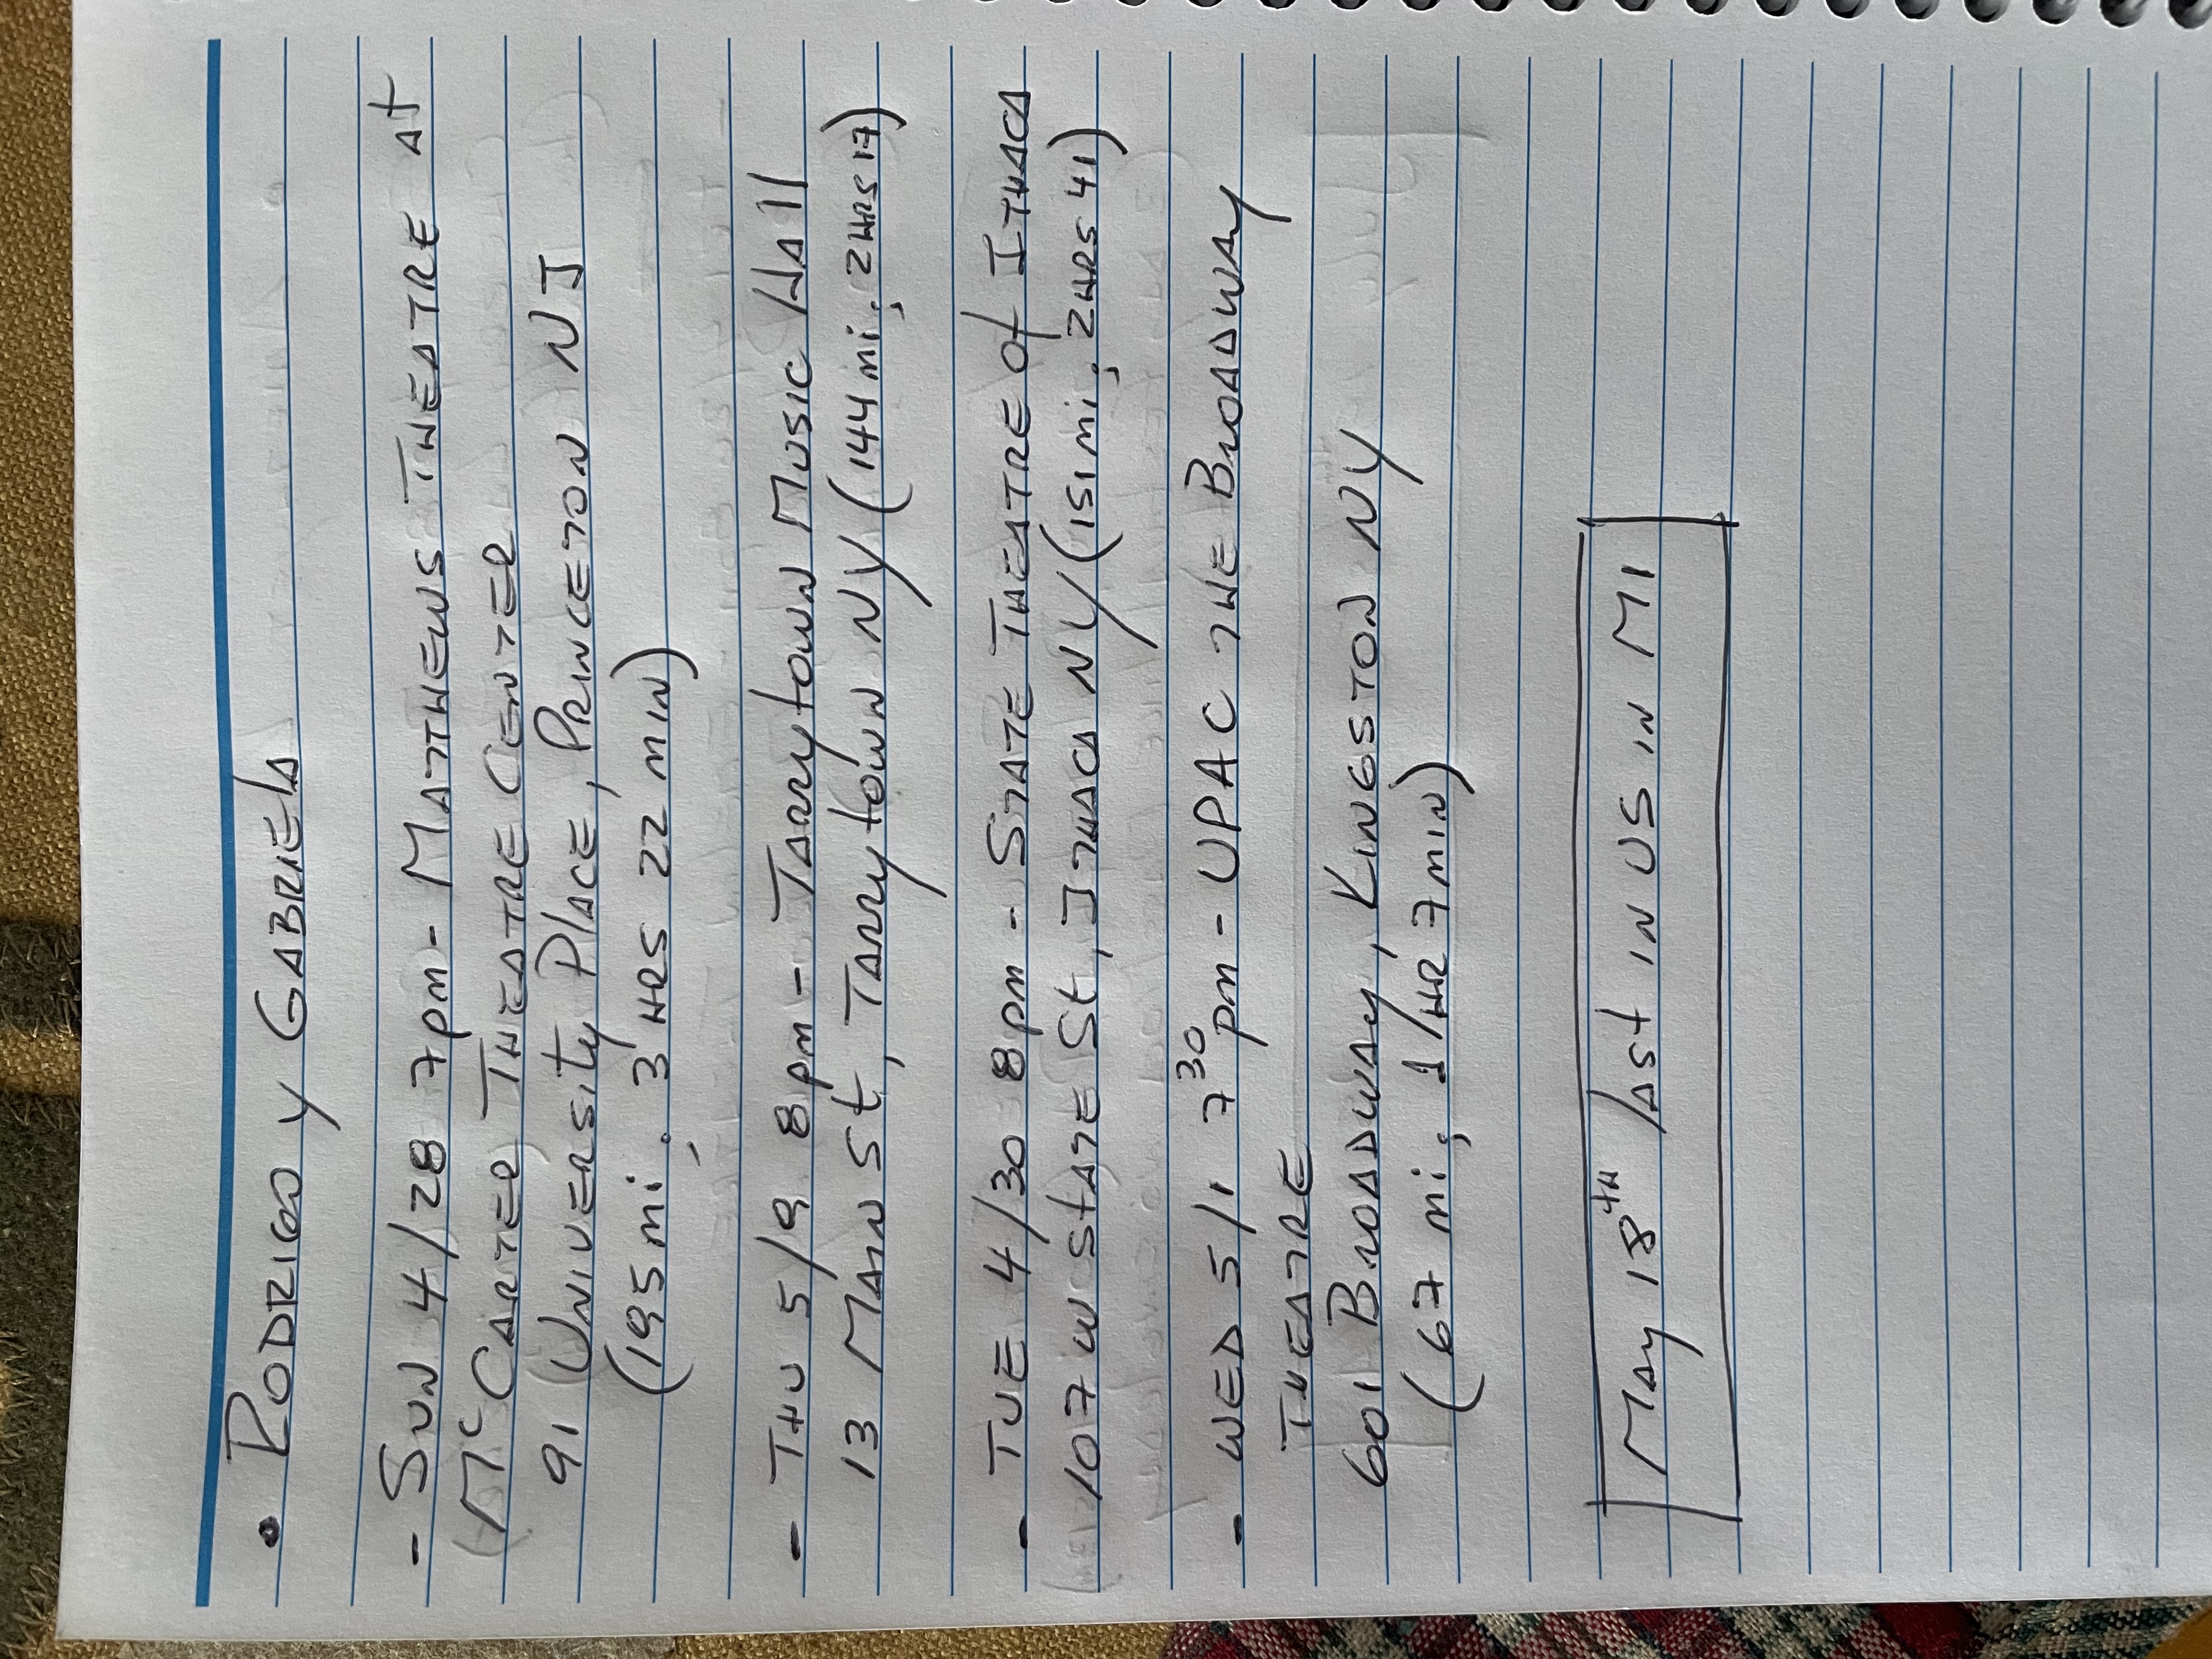 • RODRIGO y GABRIELA
- SUN 4/28 7pm - MATTHEWS THEATRE At
McCARTER THEATRE CENTER
91 UNIVERSITY PLACE, PRINCETON NJ
(195 mi; 3 HRS 22 MIN)
- THU 5/9 8pm - TARRytOWN MUSIC HAll
13 MAIN St, TARRytOWN NY (144 mi; 2HRS 17)
- TUE 4/30 8pm - STATE THEATRE Of ITHACA
107 W StATE St, ITHACA NY (151 mi; 2HRS 41)
- WED 5/1 7 30 pm - UPAC THE BROADWAY
THEATRE
601 BROADWAY, KINGSTON NY
(67 mi; 1 HR 7 MIN)
MAY 18TH lASt IN US IN MI